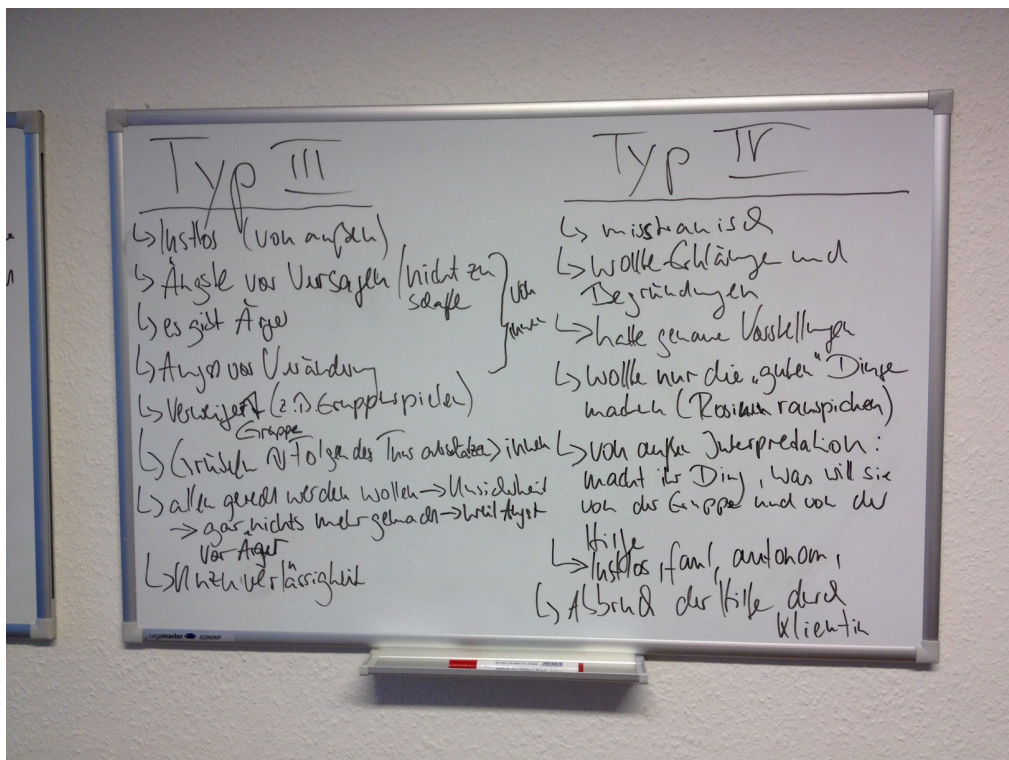 Typ III
↳ lustlos (von außen)
↳ Ängste vor Versagen / nicht zu
schaffe
↳ es gibt Ärger
↳ Angst vor Veränderung
von
innen
↳ verweigert (z.B. Gruppenspielen)
Gruppe
↳ Grübeln Folgen des Tuns abschätzen) innen
↳ allen gerecht werden wollen → Unsicherheit
→ gar nichts mehr gemacht → weil Angst
vor Ärger
↳ Unzuverlässigkeit
Typ IV
↳ misstrauisch
↳ wollte Erklärungen und
Begründungen
↳ hatte genaue Vorstellungen
↳ wollte nur die „guten" Dinge
machen (Rosinen rauspicken)
↳ von außen Interpretation:
macht ihr Ding, was will sie
von der Gruppe und von der
Hilfe
↳ lustlos, faul, autonom,
↳ Abbruch der Hilfe durch
Klientin
Legamaster ECONOMY